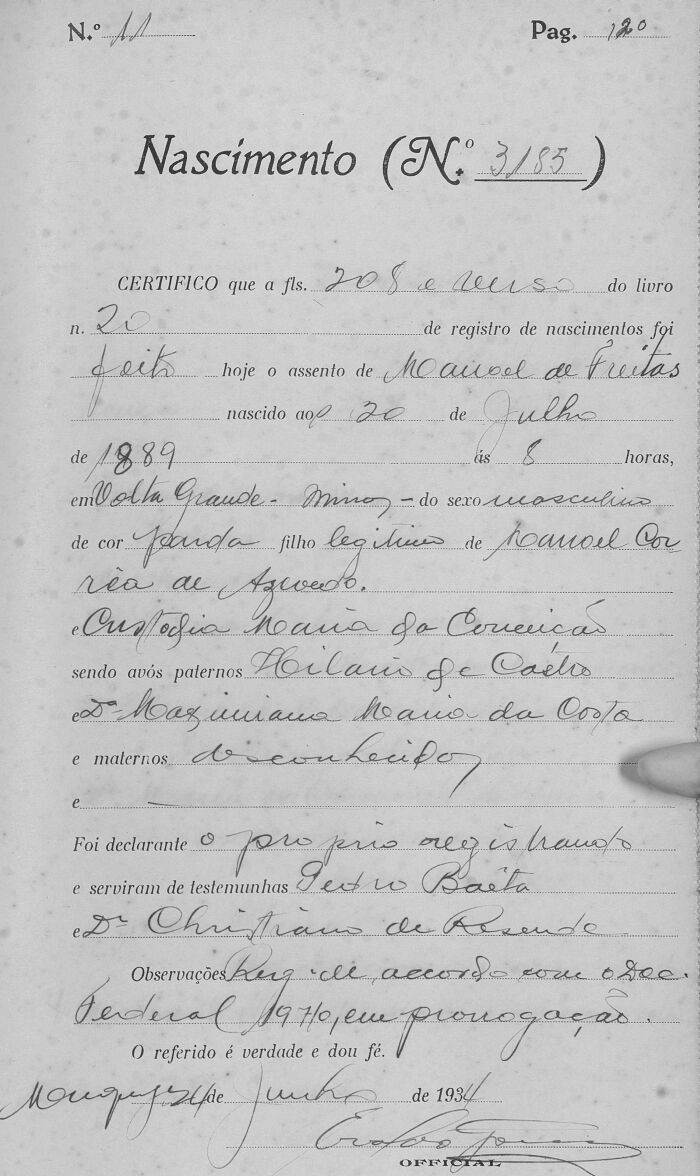 N.º 11 Pag. 120
Nascimento (N.º 3185)
CERTIFICO que a fls. 208 e verso do livro
n. 20 de registro de nascimentos foi
feito hoje o assento de Manoel de Freitas
nascido aos 20 de Julho
de 1889 ás 8 horas,
em Volta Grande - Minas - do sexo masculino
de cor parda filho legitimo de Manoel Cor
rêa de Azevedo.
e Custodia Maria da Conceição
sendo avós paternos Hilario de Castro
e Dª Maximiana Maria da Costa
e maternos desconhecidos
e —
Foi declarante o proprio registrando
e serviram de testemunhas Pedro Baêta
e Dr Christiano de Resende
Observações Reg. de accordo com o Dec.
Federal 19710, em prorogação.
O referido é verdade e dou fé.
24 de Junho de 1934
OFFICIAL